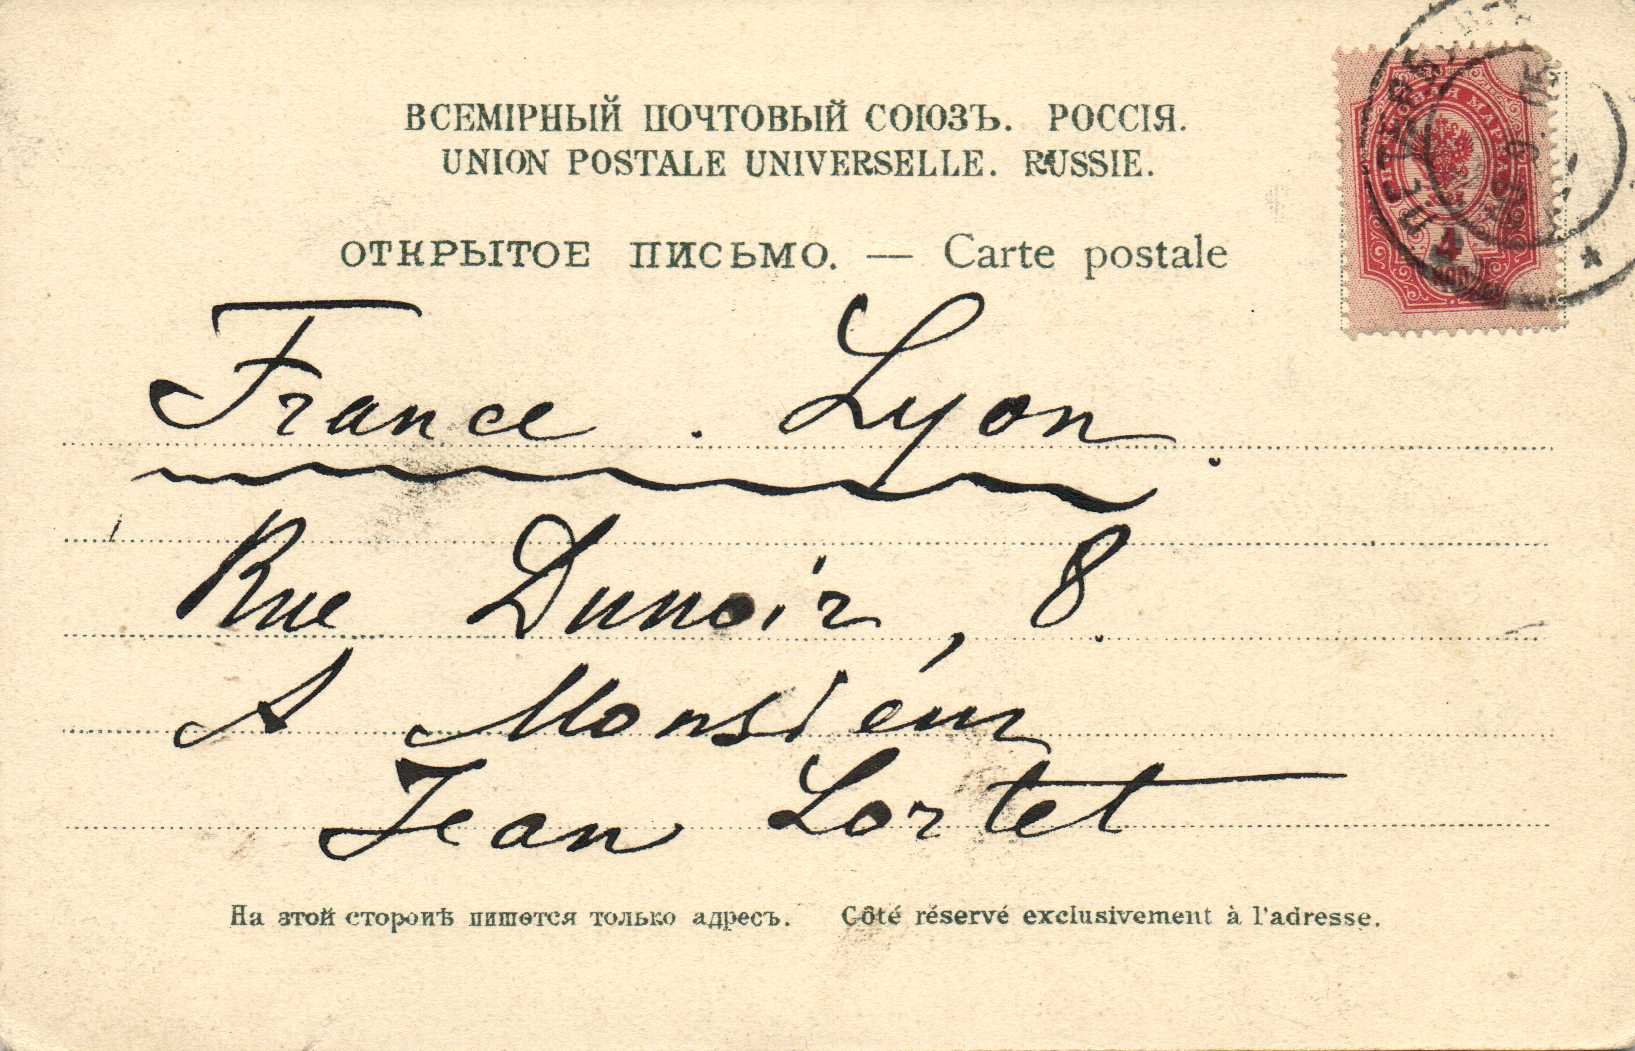 ВСЕМІРНЫЙ ПОЧТОВЫЙ СОЮЗЪ. РОССІЯ.
UNION POSTALE UNIVERSELLE. RUSSIE.
ОТКРЫТОЕ ПИСЬМО. — Carte postale
4
France. Lyon.
Rue Dunoir, 8.
A Monsiéur
Jean Lortet
На этой сторонѣ пишется только адресъ. Côté réservé exclusivement à l'adresse.